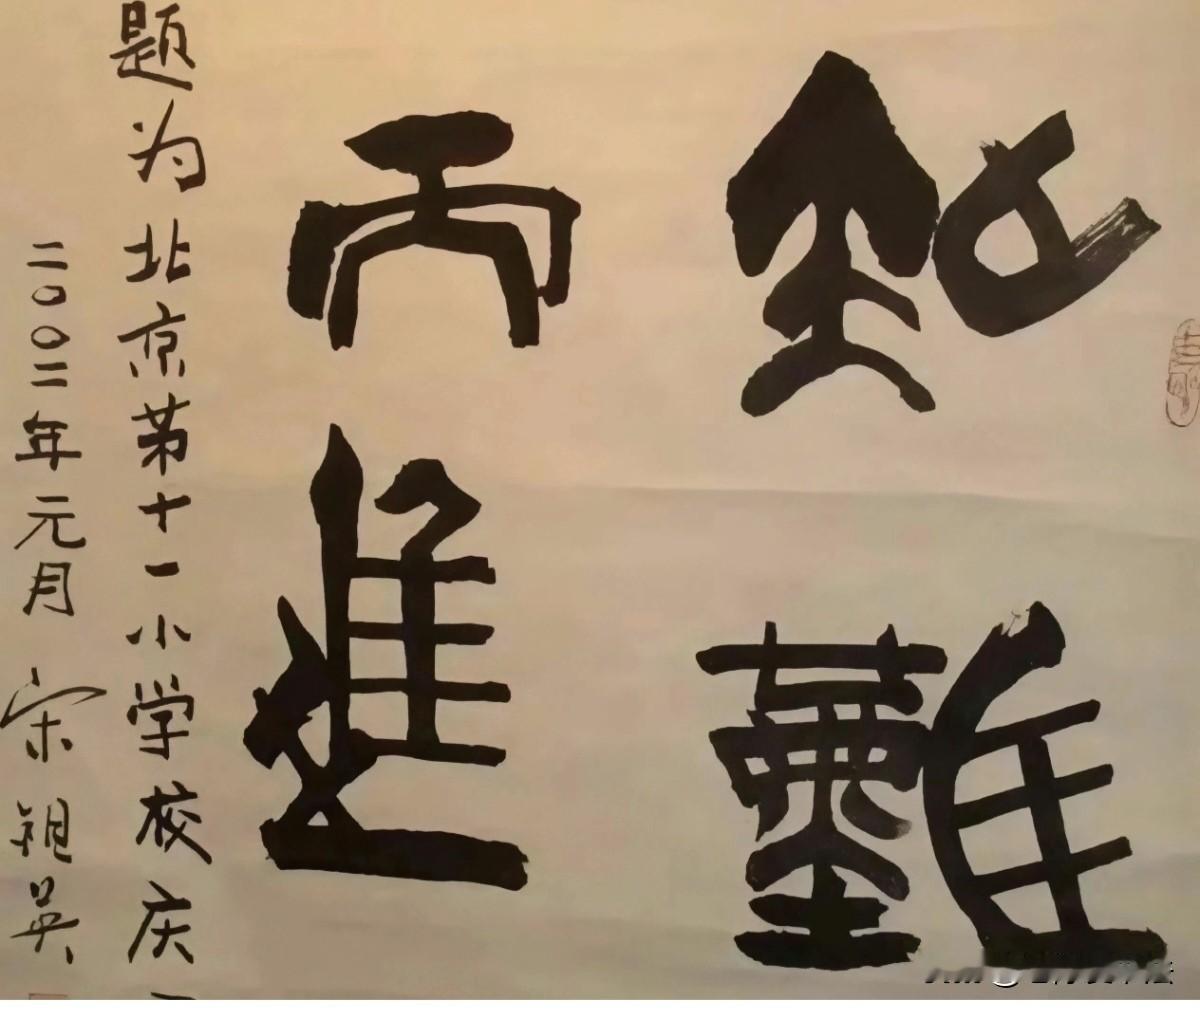 知難
而進
题为北京第十一小学校庆
二〇〇二年元月 宋祖英